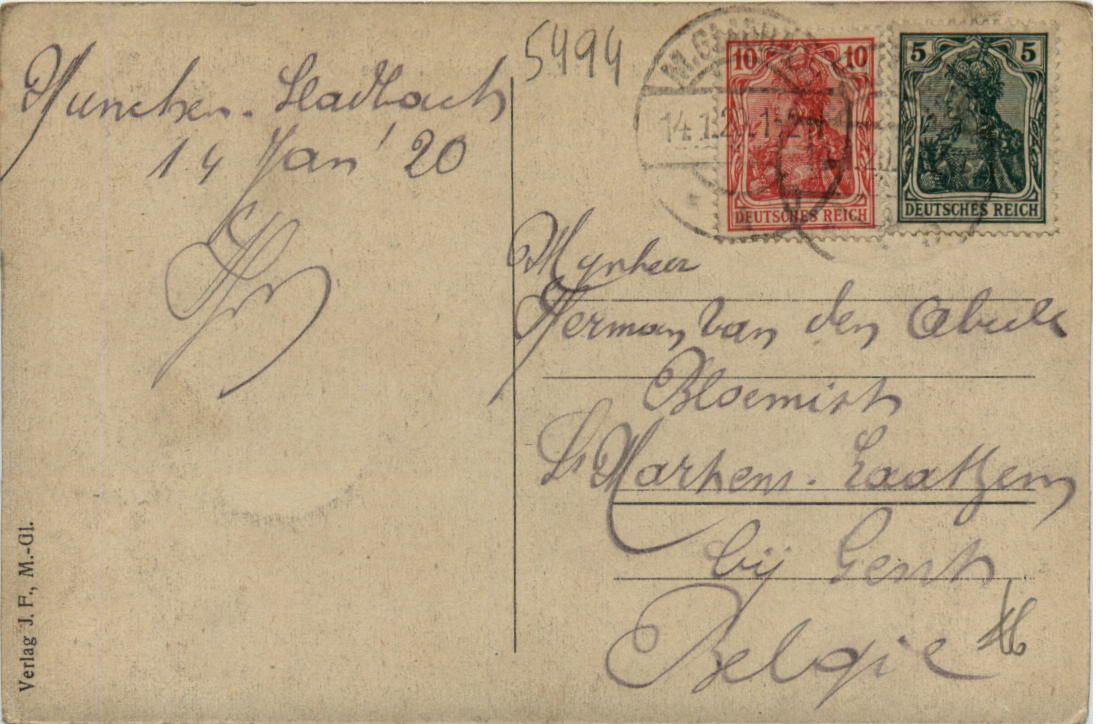 5494
Munchen-Gladbach
14 Jan' 20
M. GLADB
14.1.20.1-2
10 10
DEUTSCHES REICH
5 5
DEUTSCHES REICH
Mynheer
Herman Van den Abeele
Bloemist
St Martens-Laathem
bij Gent
Belgie
Verlag J. F., M.-Gl.